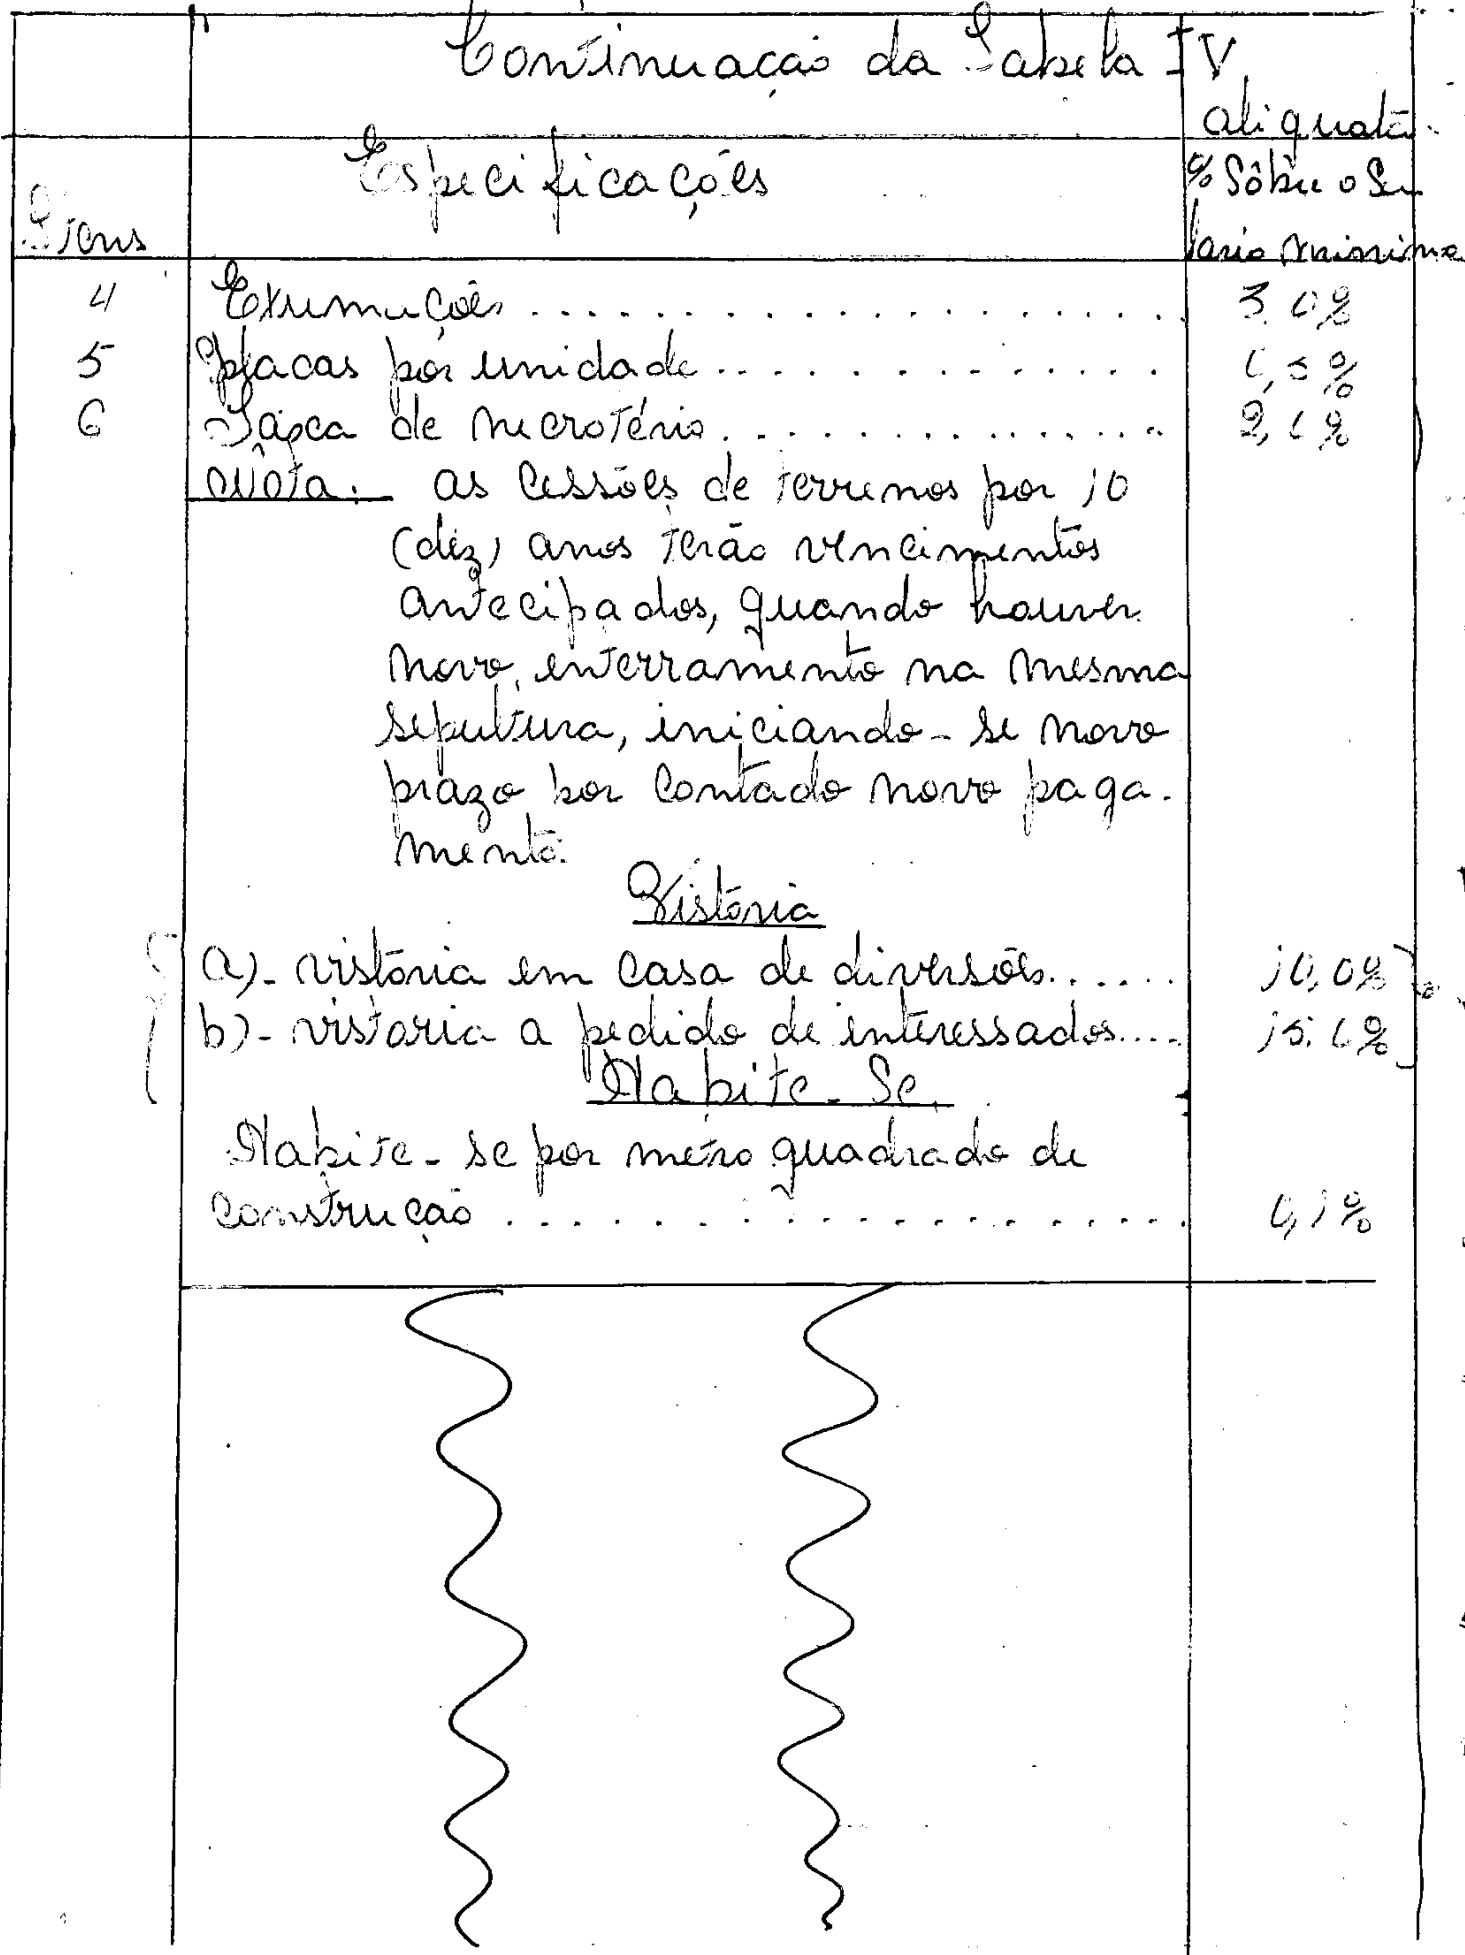 Continuação da Tabela IV
aliquota
Especificações
% Sôbre o Sa
Itens
lario minimo
4 Exumações .................... 3,0%
5 placas por unidade .............. 0,5%
6 Taxca de necrotério ............... 2,0%
Nôta: as cessões de terrenos por 10
(dez) anos terão vencimentos
antecipados, quando houver
novo enterramento na mesma
sepultura, iniciando-se novo
prazo por contado novo paga-
mento.
Vistoria
a)- vistoria em casa de diversões ...... 10,0%
b)- vistoria a pedido de interessados .... 15,0%
Habite-Se
Habite-se por metro quadrado de
construção .................... 0,1%